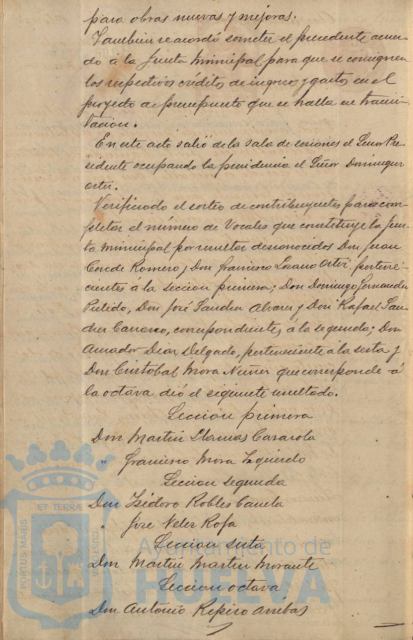 para obras nuevas y mejoras.
Tambien se acordó someter el precedente acuer-
do á la Junta Municipal para que se consignen
los respectivos créditos de ingresos y gastos en el
proyecto de presupuesto que se halla en trami-
tacion.
En este acto salió de la sala de sesiones el Señor Pre-
sidente ocupando la presidencia el Señor Dominguez
Ortí.
Verificado el sorteo de contribuyentes para com-
pletar el número de Vocales que constituye la Jun-
ta municipal por resultar desconocidos Don Juan
Conde Romero, y Don Francisco Lozano Ortí pertene-
cientes á la seccion primera; Don Domingo Fernandez
Pulido, Don José Sanchez Alvarez y Don Rafael San-
chez Carrasco, correspondientes á la segunda; Don
Amador Diaz Delgado, perteneciente á la sexta y
Don Cristobal Mora Nuñez que corresponde á
la octava dió el siguiente resultado.
Seccion primera
Don Martin Casasola
" Francisco Mora Izquierdo
Seccion segunda
Don Isidoro Robles Canela
" José Velez Rofa
Seccion sexta
Don Martin Martin Morante
Seccion octava
Don Antonio Arribas
PORTUS MARIS
ET TERRÆ
CUSTODIA
Ayuntamiento de
HUELVA